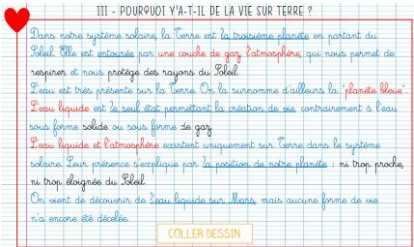 III - POURQUOI Y'A-T-IL DE LA VIE SUR TERRE ?
Dans notre système solaire, la Terre est la troisième planète en partant du
Soleil. Elle est entourée par une couche de gaz, l'atmosphère, qui nous permet de
respirer et nous protège des rayons du Soleil.
L'eau est très présente sur la Terre. On la surnomme d'ailleurs la "planète bleue".
L'eau liquide est le seul état permettant la création de vie contrairement à l'eau
sous forme solide ou sous forme de gaz.
L'eau liquide et l'atmosphère existent uniquement sur Terre dans le système
solaire. Leur présence s'explique par la position de notre planète : ni trop proche,
ni trop éloignée du Soleil.
On vient de découvrir de l'eau liquide sur Mars, mais aucune forme de vie
n'a encore été décelée.
COLLER DESSIN